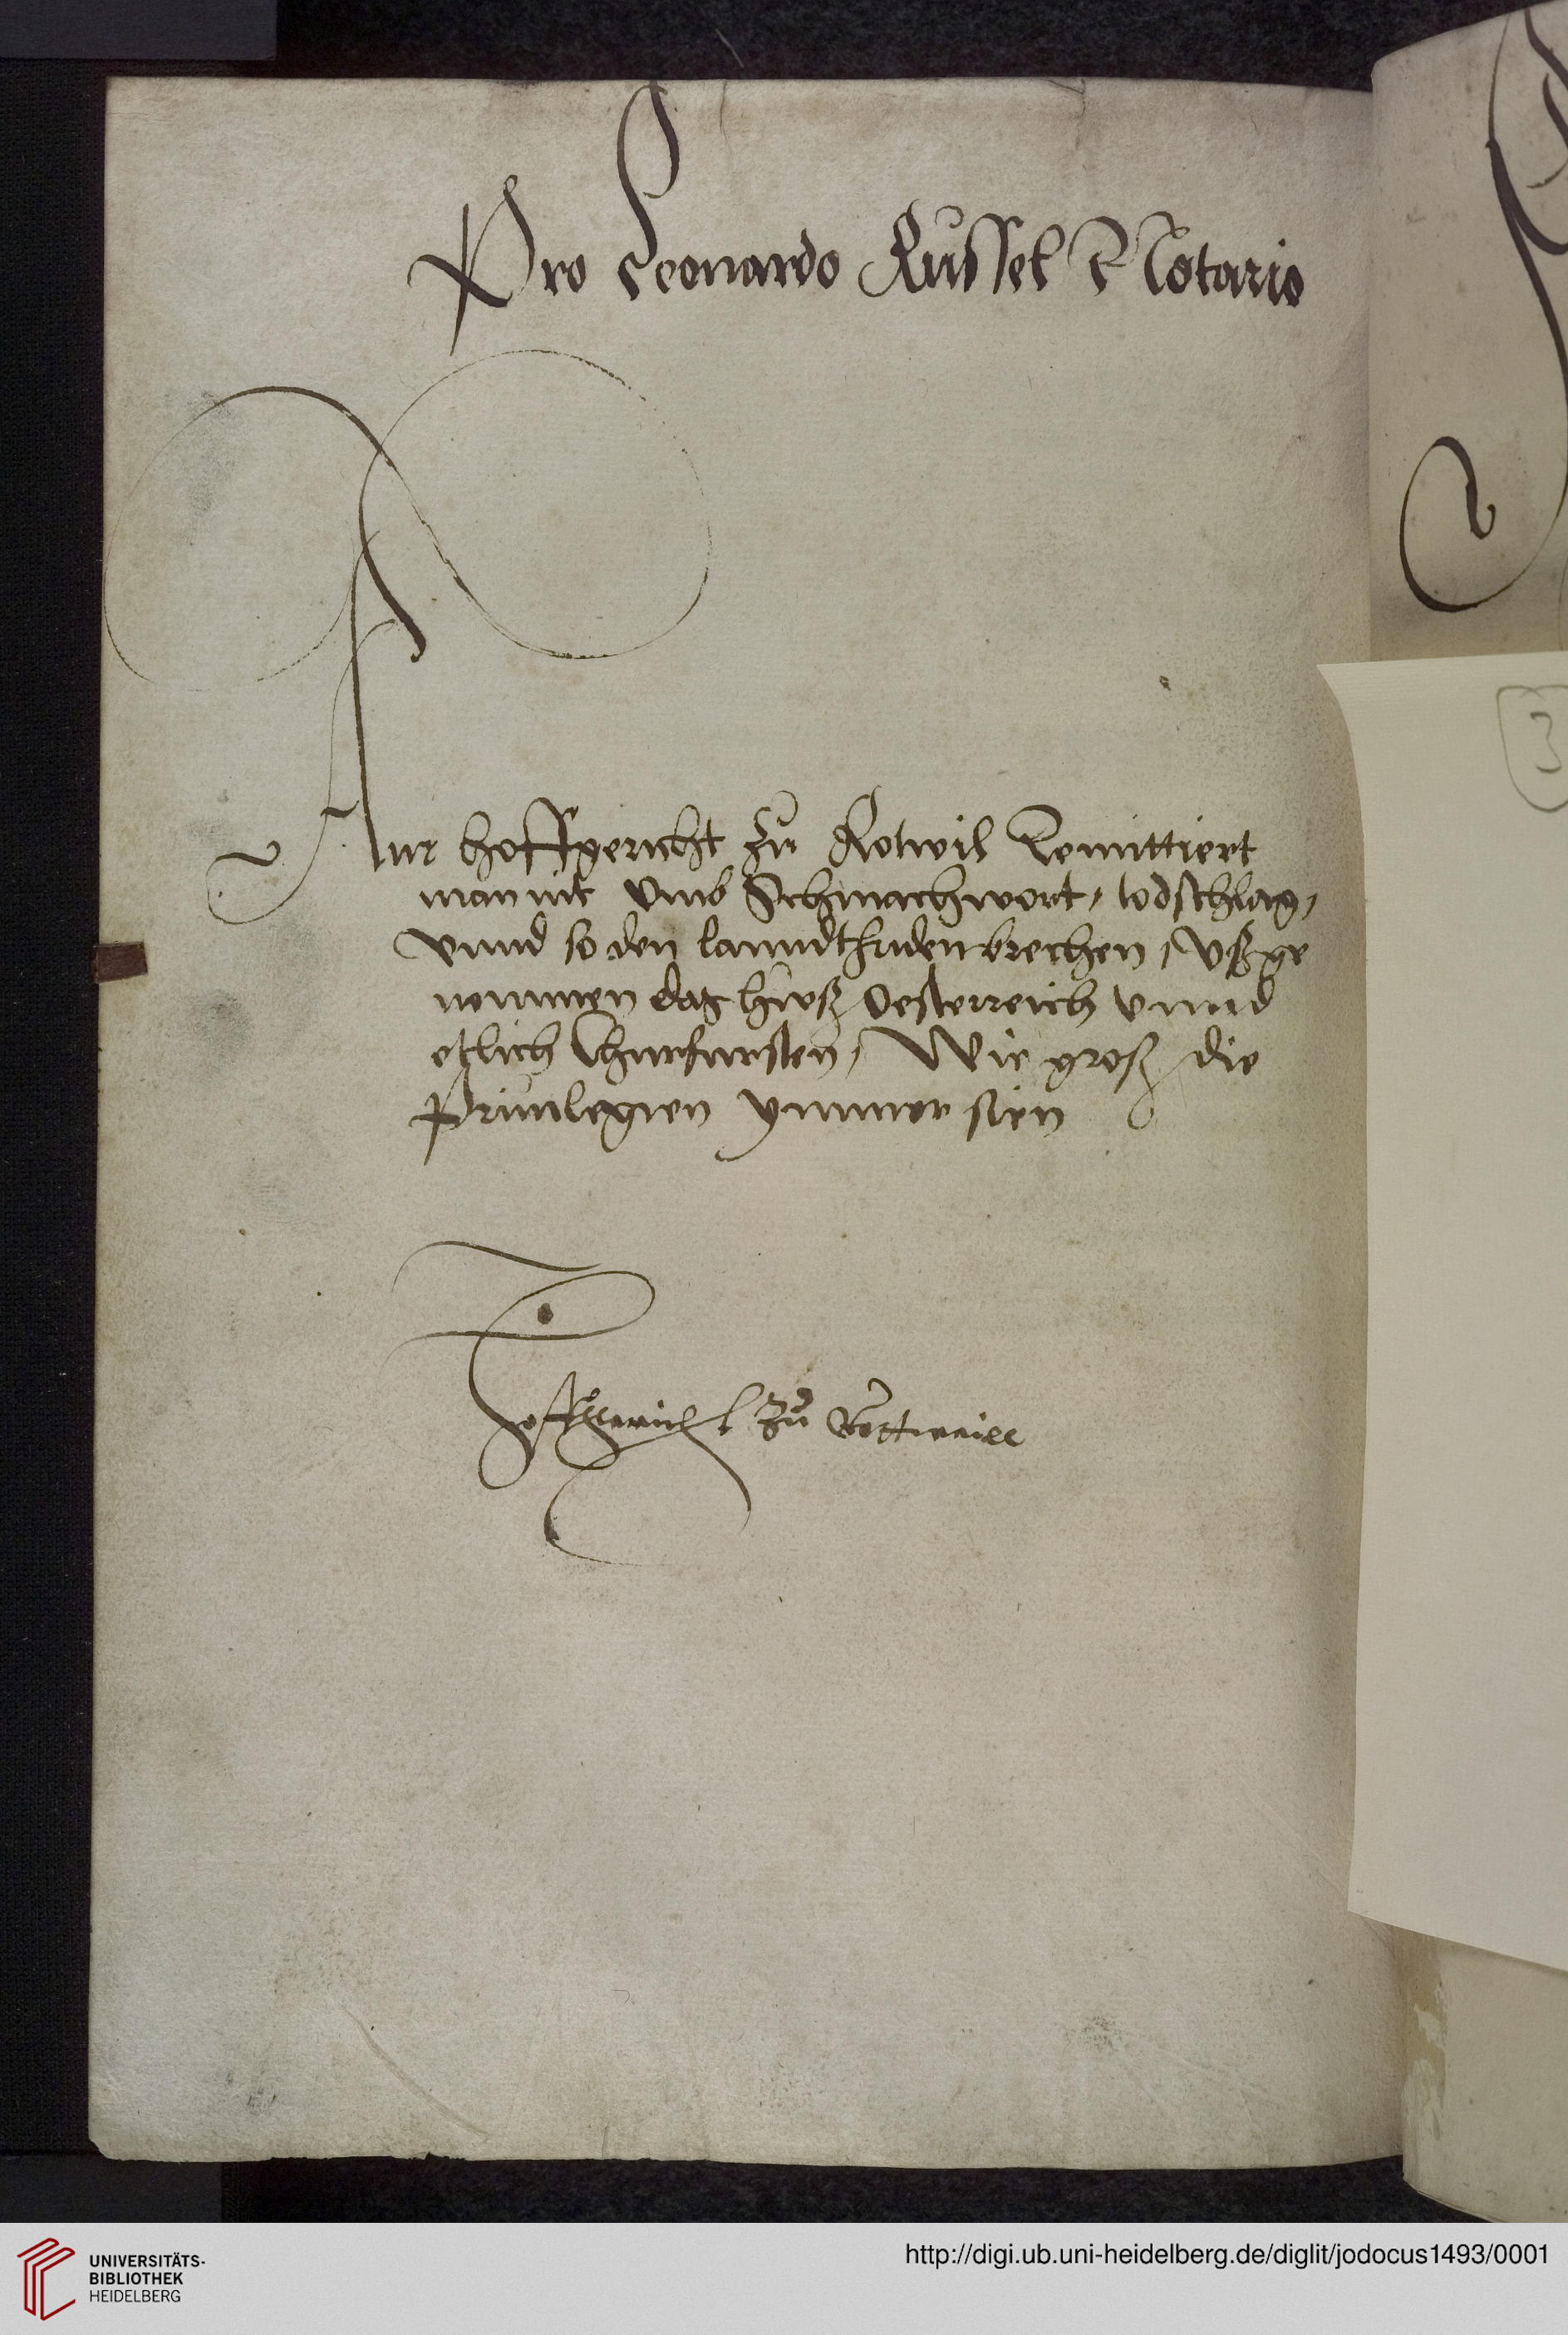 Pro Leonardo Kussel Notario
hoffgericht zu Rotwil Remittiert
man nit vmb Schmachwort, todschlag,
vnnd so den lanndtfriden brechen, vßge
nommen daz huß Oesterreich vnnd
etlich Churfursten, Wie groß die
Priuilegien ymmer sien
Hoffgericht zu Rottweill
3
UNIVERSITÄTS-
BIBLIOTHEK
HEIDELBERG
http://digi.ub.uni-heidelberg.de/diglit/jodocus1493/0001